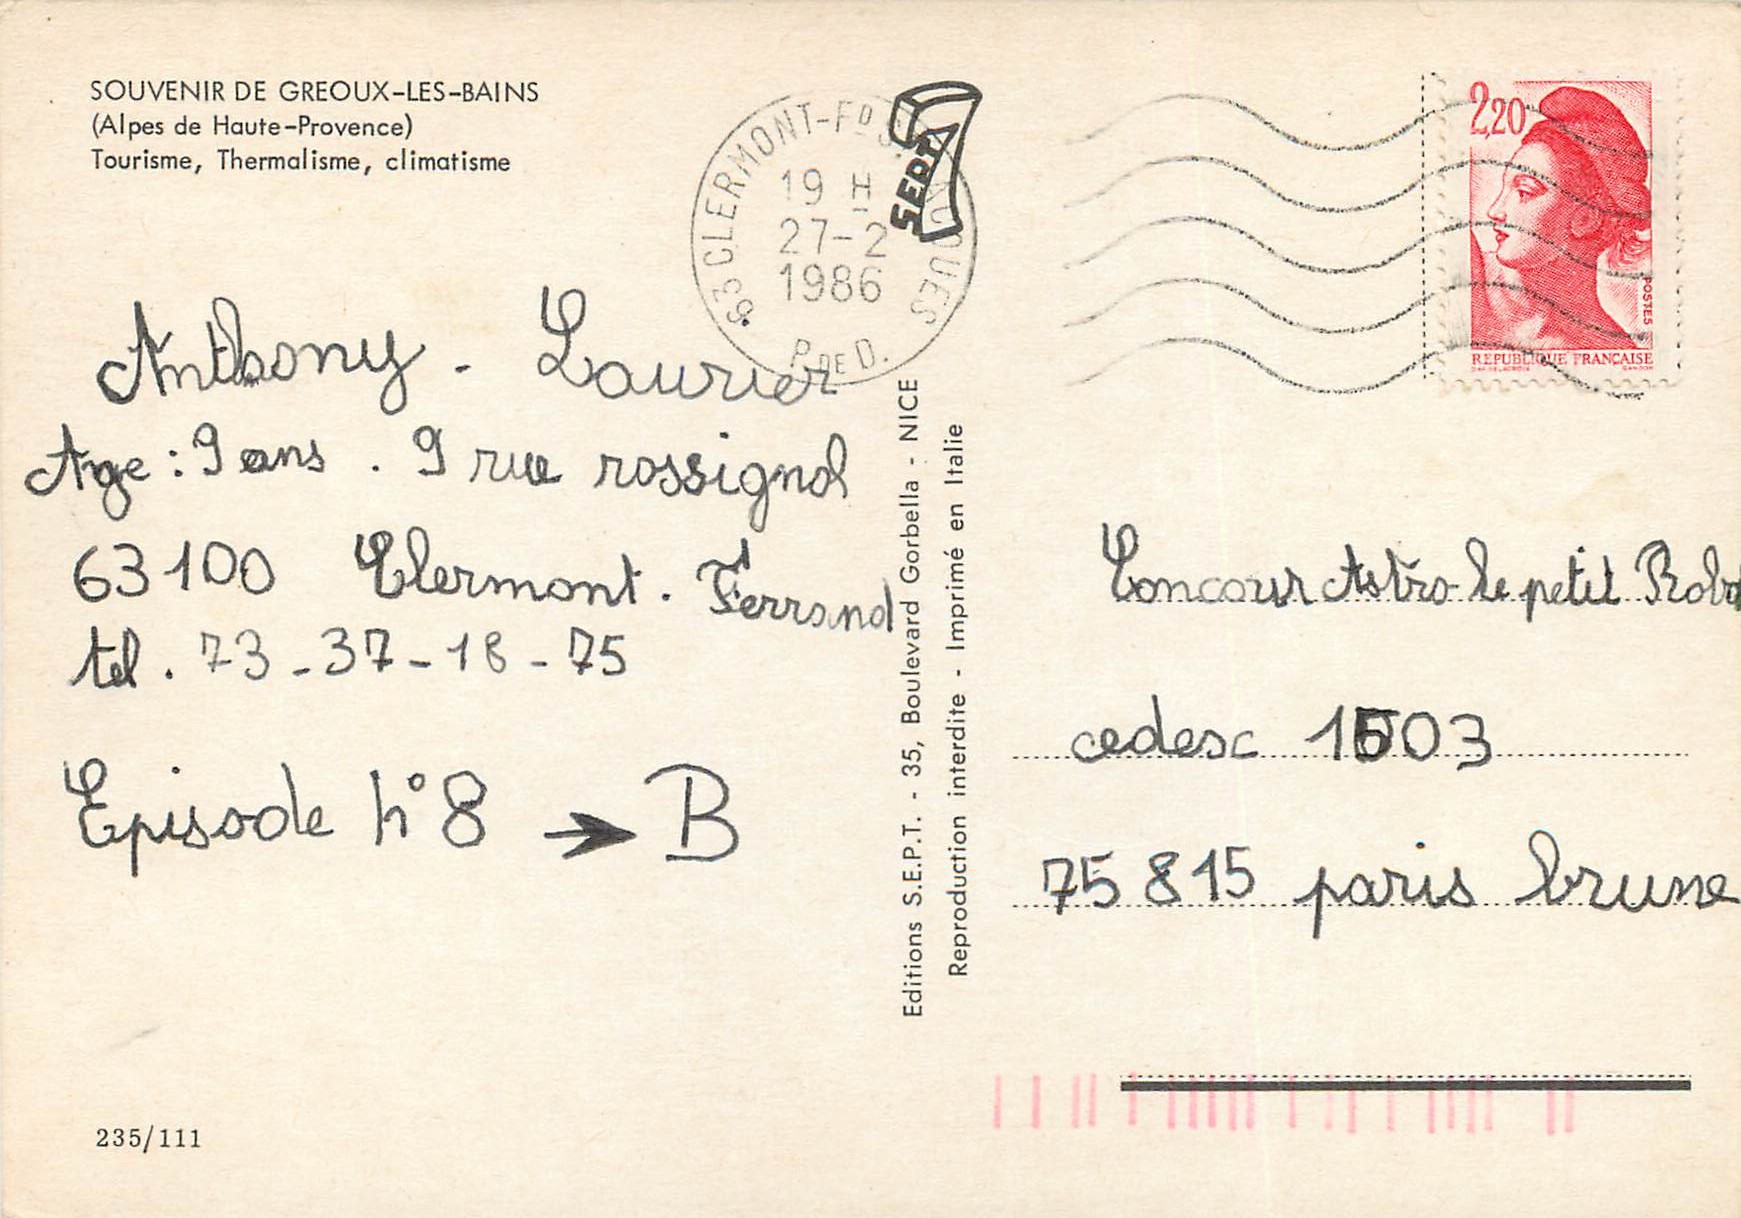 SOUVENIR DE GREOUX-LES-BAINS
(Alpes de Haute-Provence)
Tourisme, Thermalisme, climatisme
63 CLERMONT-Fd
19 H
27-2
1986
P. DE D.
SEPT
2,20
POSTES
REPUBLIQUE FRANÇAISE
GANDON
Anthony - Laurier
Age : 9 ans . 9 rue rossignol
63100 Clermont. Ferrand
tel. 73-37-18-75
Episode n°8 → B
Editions S.E.P.T. - 35, Boulevard Gorbella - NICE
Reproduction interdite - Imprimé en Italie
Concour Astro-le petit Robot
cedesc 1503
75815 paris brune
235/111